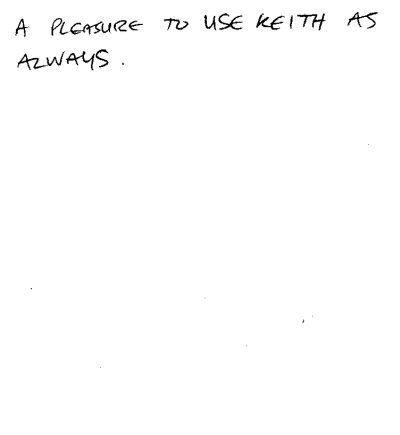 A PLEASURE TO USE KEITH AS
ALWAYS.